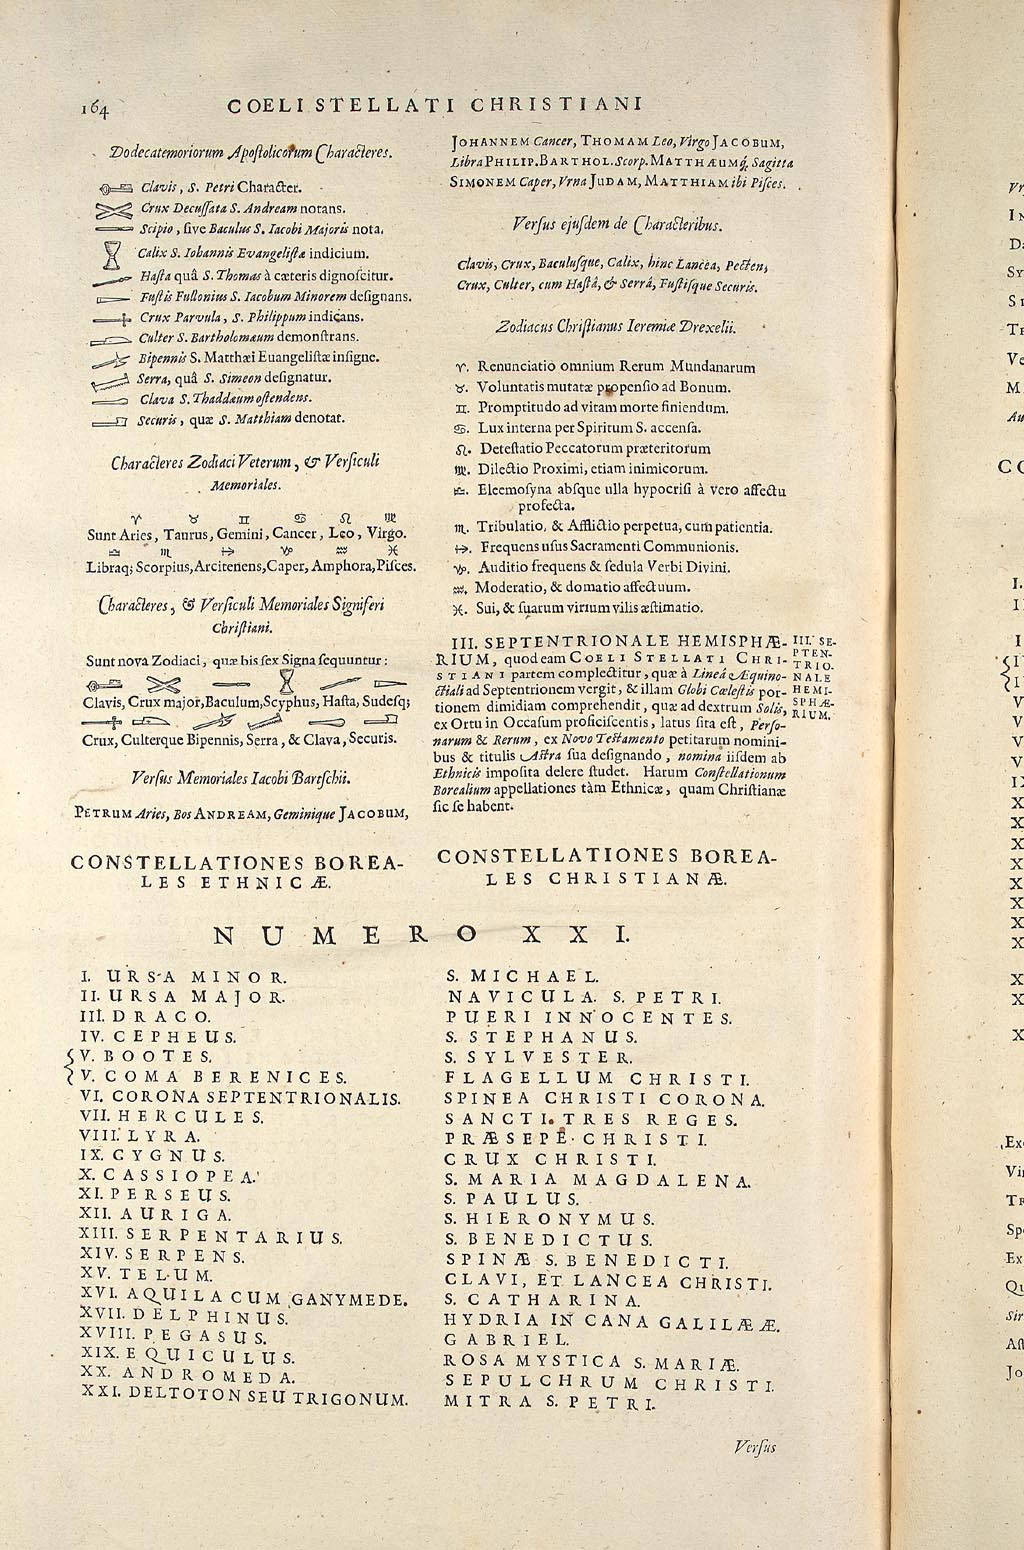 164
COELI STELLATI CHRISTIANI
Dodecatemoriorum Apoſtolicorum Characteres.
Clavis, S. Petri Character.
Crux Decuſſata S. Andream notans.
Scipio, ſive Baculus S. Iacobi Majoris nota.
Calix S. Iohannis Evangeliſtæ indicium.
Haſta quâ S. Thomas à cæteris dignoſcitur.
Fuſtis Fullonius S. Iacobum Minorem deſignans.
Crux Parvula, S. Philippum indicans.
Culter S. Bartholomæum demonſtrans.
Bipennis S. Matthæi Euangeliſtæ inſigne.
Serra, quâ S. Simeon deſignatur.
Clava S. Thaddæum oſtendens.
Securis, quæ S. Matthiam denotat.
Characteres Zodiaci Veterum, & Verſiculi
Memoriales.
♈ ♉ ♊ ♋ ♌ ♍
Sunt Aries, Taurus, Gemini, Cancer, Leo, Virgo.
♎ ♏ ♐ ♑ ♒ ♓
Libraq; Scorpius, Arcitenens, Caper, Amphora, Piſces.
Characteres, & Verſiculi Memoriales Signiferi
Chriſtiani.
Sunt nova Zodiaci, quæ his ſex Signa ſequuntur:
Clavis, Crux major, Baculum, Scyphus, Haſta, Sudeſq;
Crux, Culterque Bipennis, Serra, & Clava, Securis.
Verſus Memoriales Iacobi Bartſchii.
PETRUM Aries, Bos ANDREAM, Geminique JACOBUM,
JOHANNEM Cancer, THOMAM Leo, Virgo JACOBUM,
Libra PHILIP. BARTHOL. Scorp. MATTHÆUMq́. Sagitta
SIMONEM Caper, Vrna JUDAM, MATTHIAM ibi Piſces.
Verſus ejuſdem de Characteribus.
Clavis, Crux, Baculuſque, Calix, hinc Lancea, Pecten,
Crux, Culter, cum Haſtâ, & Serrâ, Fuſtiſque Securis.
Zodiacus Chriſtianus Ieremiæ Drexelii.
♈. Renunciatio omnium Rerum Mundanarum
♉. Voluntatis mutatæ propenſio ad Bonum.
♊. Promptitudo ad vitam morte finiendum.
♋. Lux interna per Spiritum S. accenſa.
♌. Deteſtatio Peccatorum præteritorum
♍. Dilectio Proximi, etiam inimicorum.
♎. Eleemoſyna abſque ulla hypocriſi à vero affectu
profecta.
♏. Tribulatio, & Afflictio perpetua, cum patientia.
♐. Frequens uſus Sacramenti Communionis.
♑. Auditio frequens & ſedula Verbi Divini.
♒. Moderatio, & domatio affectuum.
♓. Sui, & ſuarum virium vilis æſtimatio.
III. SEPTENTRIONALE HEMISPHÆ-
RIUM, quod eam COELI STELLATI CHRI-
STIANI partem complectitur, quæ à Lineâ Æquino-
ctiali ad Septentrionem vergit, & illam Globi Cœleſtis por-
tionem dimidiam comprehendit, quæ ad dextrum Solis,
ex Ortu in Occaſum proficiſcentis, latus ſita eſt, Perſo-
narum & Rerum, ex Novo Teſtamento petitarum nomini-
bus & titulis Aſtra ſua deſignando, nomina iiſdem ab
Ethnicis impoſita delere ſtudet. Harum Conſtellationum
Borealium appellationes tàm Ethnicæ, quam Chriſtianæ
ſic ſe habent.
III. SE-
PTEN-
TRIO-
NALE
HEMI-
SPHÆ-
RIUM.
CONSTELLATIONES BOREA-
LES ETHNICÆ.
CONSTELLATIONES BOREA-
LES CHRISTIANÆ.
NUMERO XXI.
I. URSA MINOR.
II. URSA MAJOR.
III. DRACO.
IV. CEPHEUS.
V. BOOTES.
V. COMA BERENICES.
VI. CORONA SEPTENTRIONALIS.
VII. HERCULES.
VIII. LYRA.
IX. CYGNUS.
X. CASSIOPEA.
XI. PERSEUS.
XII. AURIGA.
XIII. SERPENTARIUS.
XIV. SERPENS.
XV. TELUM.
XVI. AQUILA CUM GANYMEDE.
XVII. DELPHINUS.
XVIII. PEGASUS.
XIX. EQUICULUS.
XX. ANDROMEDA.
XXI. DELTOTON SEU TRIGONUM.
S. MICHAEL.
NAVICULA S. PETRI.
PUERI INNOCENTES.
S. STEPHANUS.
S. SYLVESTER.
FLAGELLUM CHRISTI.
SPINEA CHRISTI CORONA.
SANCTI TRES REGES.
PRÆSEPE CHRISTI.
CRUX CHRISTI.
S. MARIA MAGDALENA.
S. PAULUS.
S. HIERONYMUS.
S. BENEDICTUS.
SPINÆ S. BENEDICTI.
CLAVI, ET LANCEA CHRISTI.
S. CATHARINA.
HYDRIA IN CANA GALILÆÆ.
GABRIEL.
ROSA MYSTICA S. MARIÆ.
SEPULCHRUM CHRISTI.
MITRA S. PETRI.
Verſus